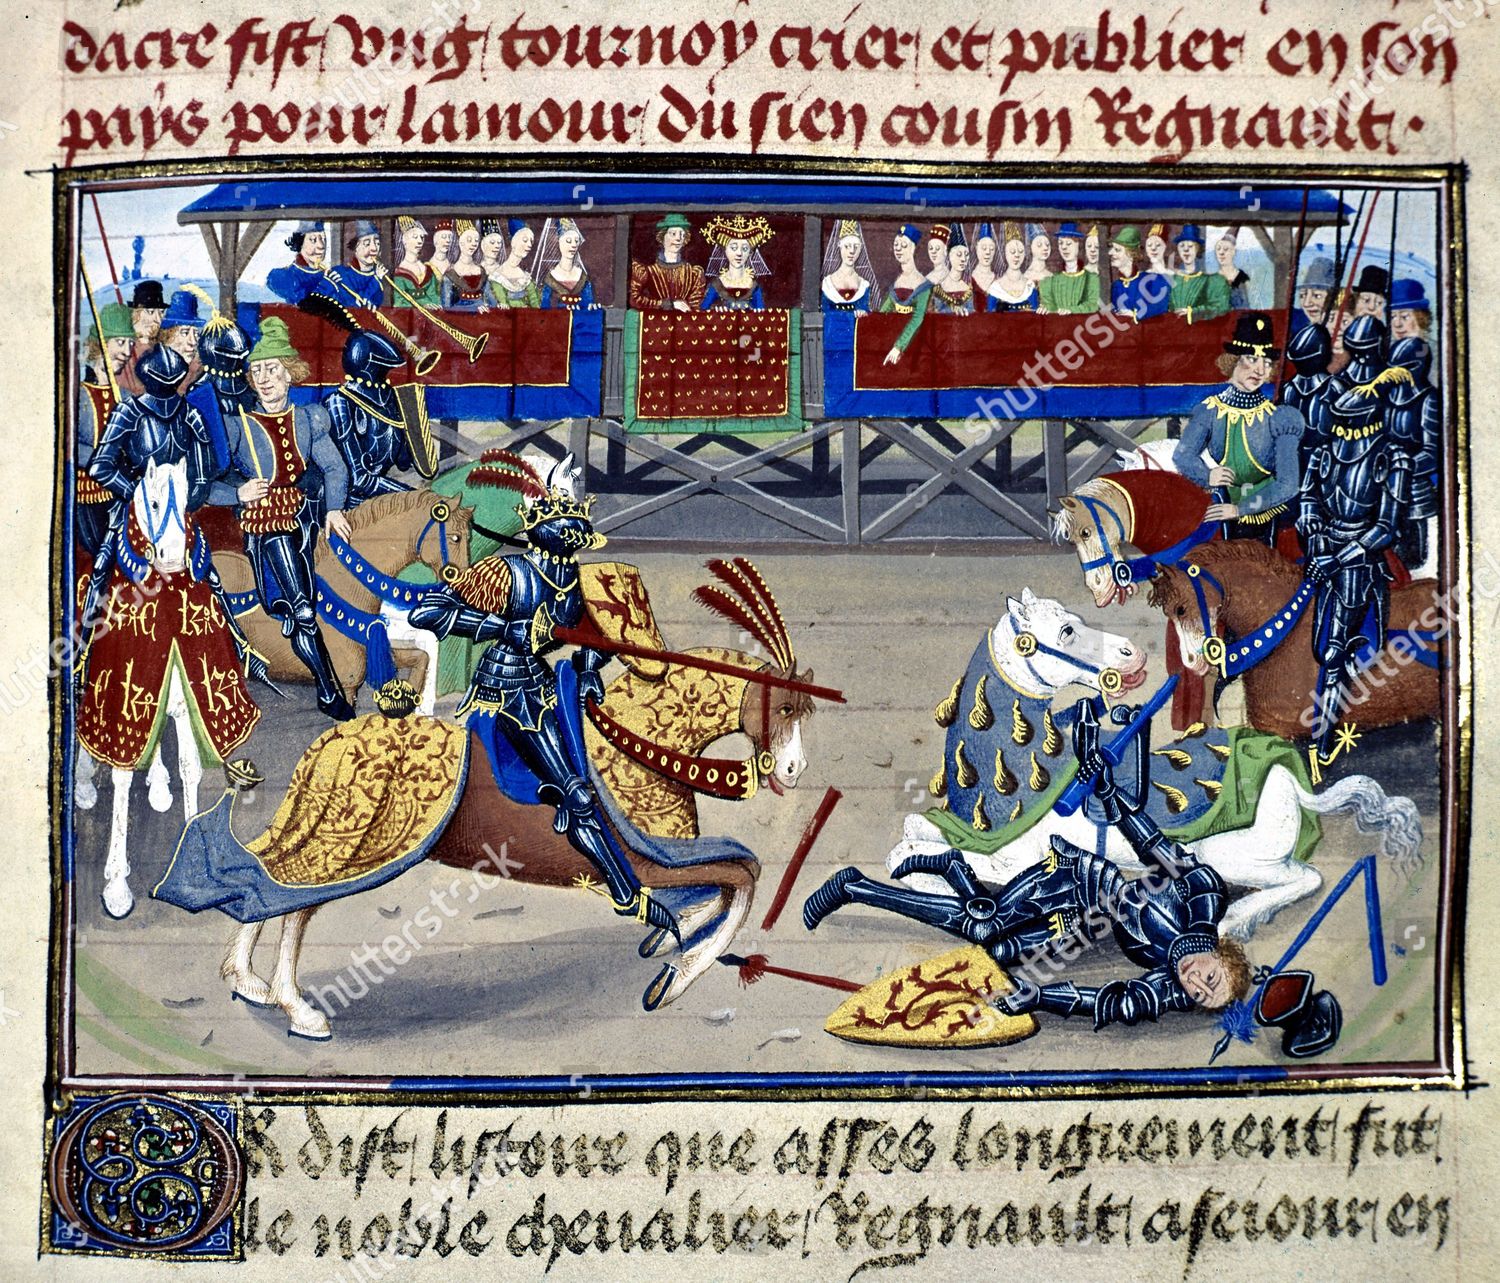 dacre fist vng tournoy crier et publier en son
pays pour lamour du sien cousin Regnault.
Or dist listoire que asses longuement fut
le noble cheualier Regnault a seiour en